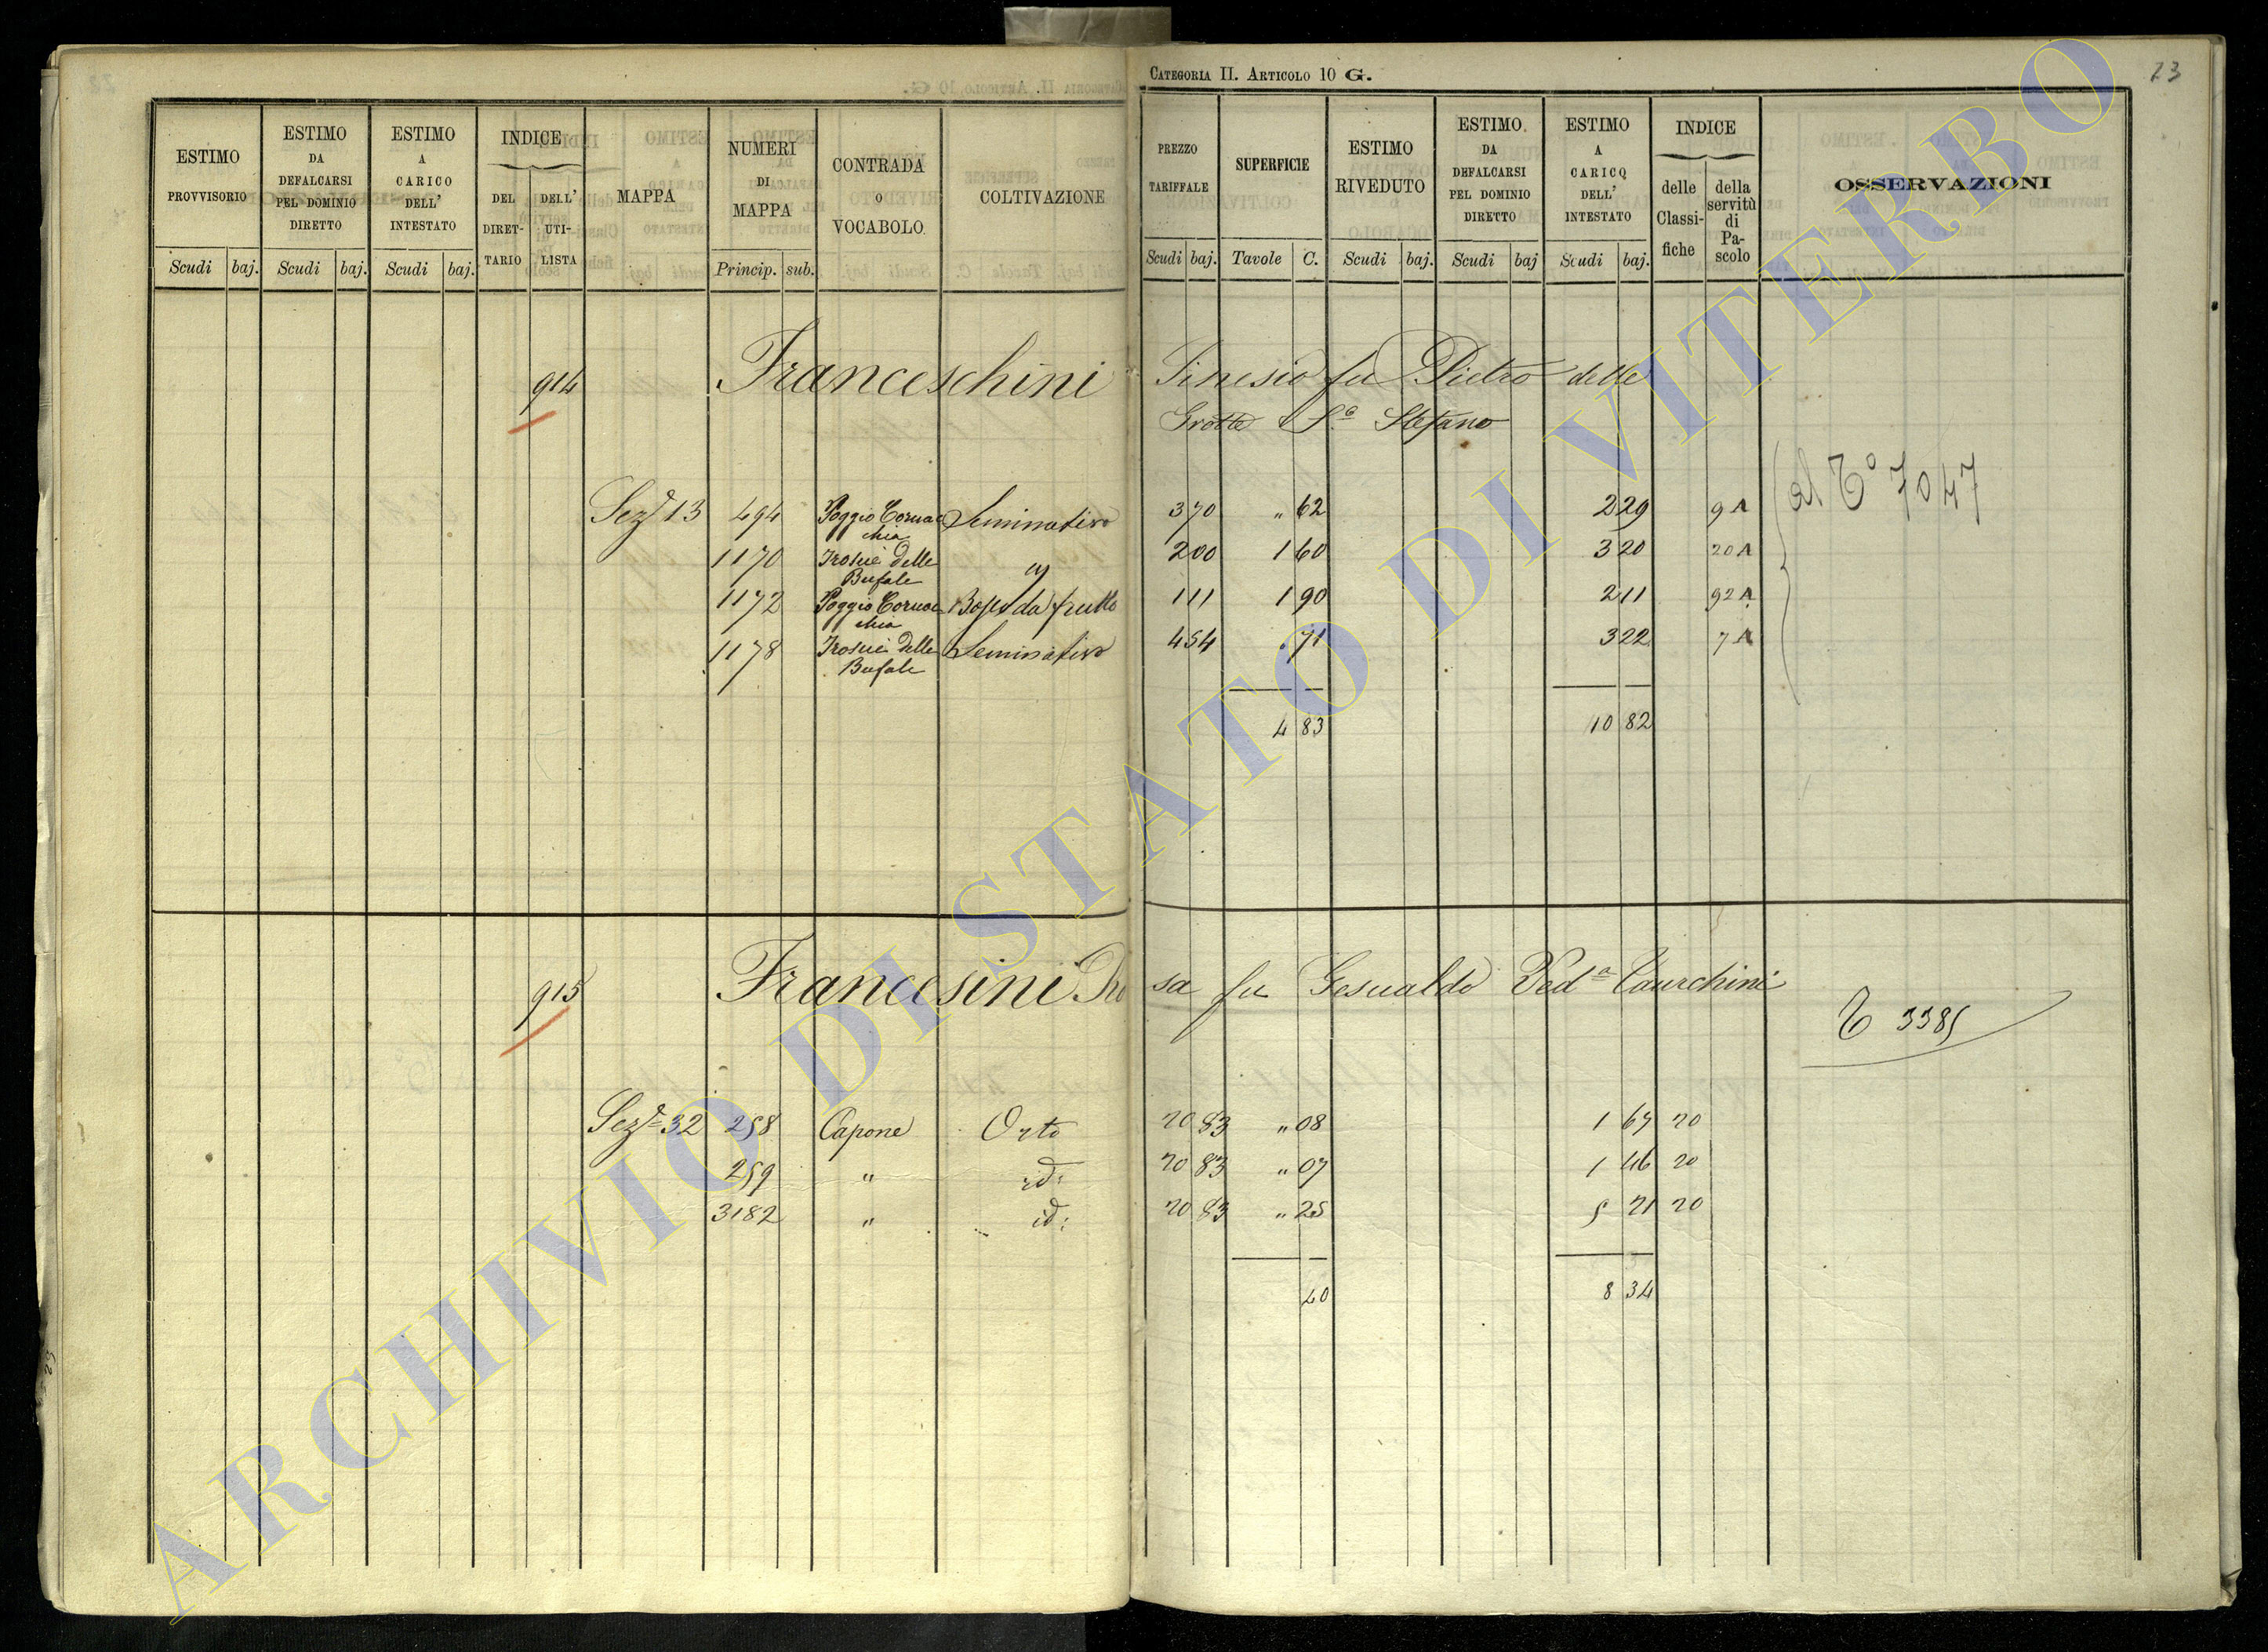 CATEGORIA II. ARTICOLO 10 G.
23
ESTIMO PROVVISORIO
ESTIMO DA DEFALCARSI PEL DOMINIO DIRETTO
ESTIMO A CARICO DELL' INTESTATO
INDICE
DEL DIRET-TARIO
DELL' UTI-LISTA
MAPPA
NUMERI DI MAPPA
CONTRADA O VOCABOLO
COLTIVAZIONE
PREZZO TARIFFALE
SUPERFICIE
ESTIMO RIVEDUTO
ESTIMO DA DEFALCARSI PEL DOMINIO DIRETTO
ESTIMO A CARICO DELL' INTESTATO
INDICE
delle Classi-fiche
della servitù di Pa-scolo
OSSERVAZIONI
Scudi baj. Scudi baj. Scudi baj. Princip. sub. Scudi baj. Tavole C. Scudi baj. Scudi baj Scudi baj.
914 Franceschini Sinesio fu Pietro delle
Grotte Sto Stefano
al To 7047
Seze 13 494 Poggio Cornac chia Seminativo 3 70 " 62 2 29 9 A
1170 Trosce delle Bufale " 2 00 1 60 3 20 20 A
1172 Poggio Cornac chia Bosco da frutto 1 11 1 90 2 11 92 A
1178 Trosce delle Bufale Seminativo 4 54 . 71 3 22 7 A
4 83 10 82
915 Francesini Rosa fu Gesualdo Veda Taurchini
T 3385
Seze 32 258 Capone Orto 20 83 " 08 1 67 20
259 " id: 20 83 " 07 1 46 20
3182 " id: 20 83 " 25 5 21 20
40 8 34
ARCHIVIO DI STATO DI VITERBO